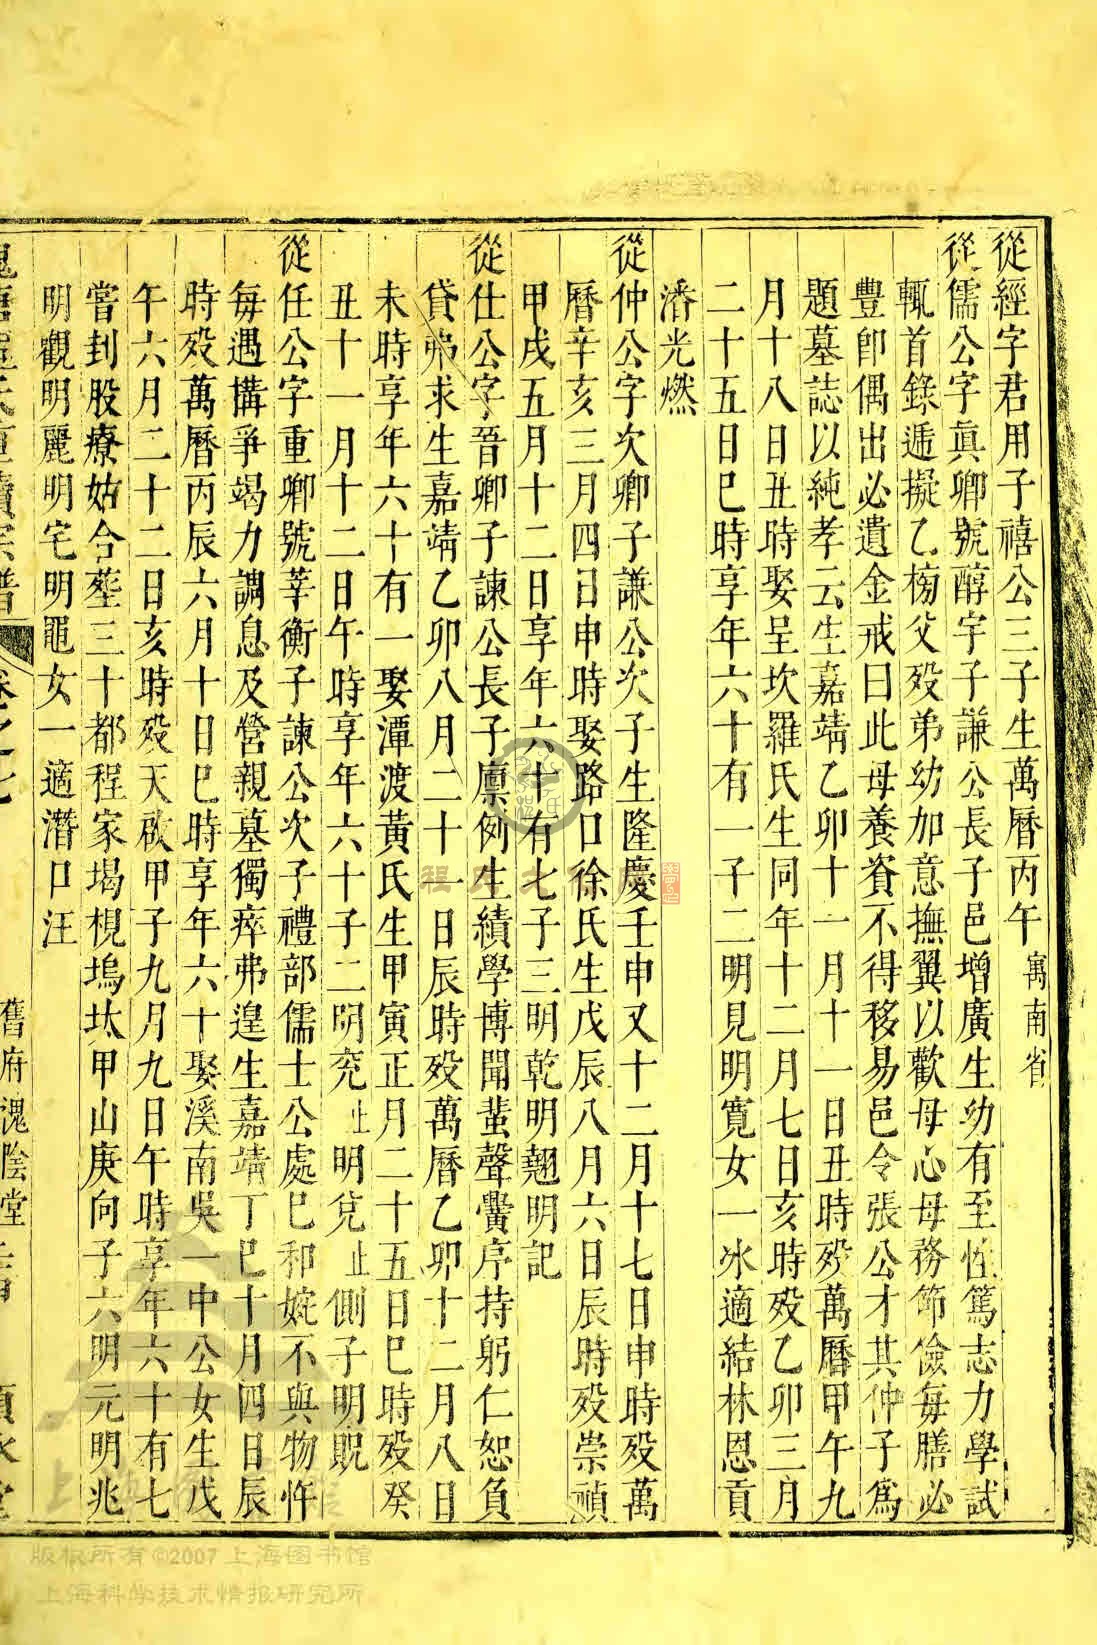 從經字君用子禧公三子生萬曆丙午寓南省
從儒公字眞卿號醇宇子謙公長子邑增廣生幼有至性篤志力學試
輒首錄遞擬乙榜父歿弟幼加意撫翼以歡母心母務節儉每膳必
豐卽偶出必遺金戒曰此母養資不得移易邑令張公才其仲子爲
題墓誌以純孝云生嘉靖乙卯十一月十一日丑時歿萬曆甲午九
月十八日丑時娶呈坎羅氏生同年十二月七日亥時歿乙卯三月
二十五日巳時享年六十有一子二明見明寬女一氷適結林恩貢
潘光燃
從仲公字次卿子謙公次子生隆慶壬申又十二月十七日申時歿萬
曆辛亥三月四日申時娶路口徐氏生戊辰八月六日辰時歿崇禎
甲戌五月十二日享年六十有七子三明乾明翹明記
從仕公字晉卿子諫公長子廩例生績學博聞蜚聲黌序持躬仁恕負
貸弗求生嘉靖乙卯八月二十一日辰時歿萬曆乙卯十二月八日
未時享年六十有一娶潭渡黃氏生甲寅正月二十五日巳時歿癸
丑十一月十二日午時享年六十子二明兖止明兌止側子明貺
從任公字重卿號莘衡子諫公次子禮部儒士公處已和婉不與物忤
每遇搆爭竭力調息及營親墓獨瘁弗遑生嘉靖丁巳十月四日辰
時歿萬曆丙辰六月十日巳時享年六十娶溪南吳一中公女生戊
午六月二十二日亥時歿天啟甲子九月九日午時享年六十有七
嘗刲股療姑合塟三十都程家堨梘塢坎甲山庚向子六明元明兆
明觀明麗明宅明黽女一適潛口汪
氏重續宗譜 卷之七 舊府槐陰堂
版权所有©2007上海图书馆
上海科学技术情报研究所